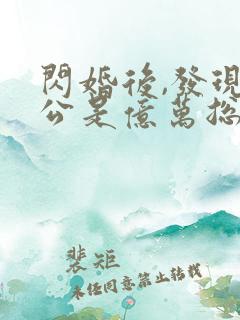 閃婚後,發現
公是億萬总
裴矩
未任同意禁止转载